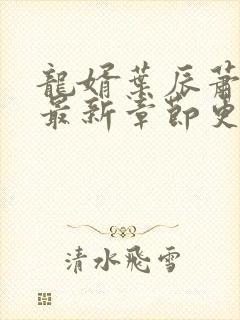 龍婿葉辰蕭
最新章節更
清水飛雪